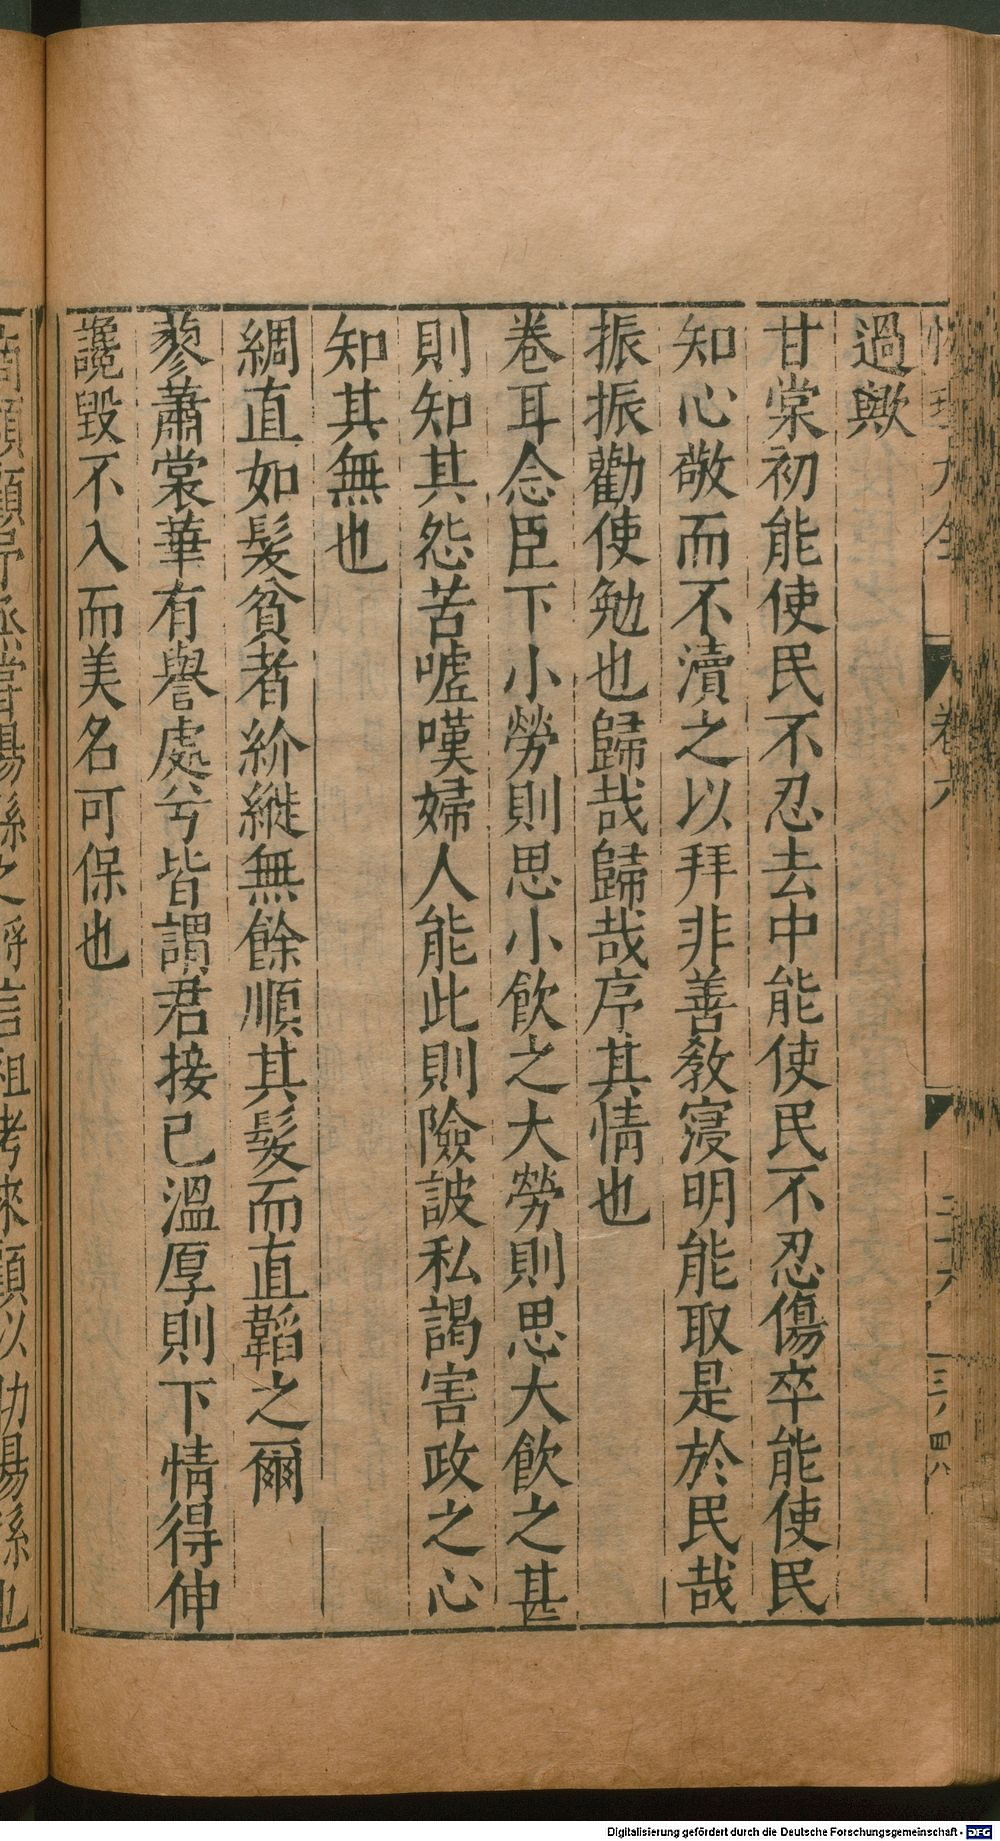 性理大全
卷六
二十六
三ノ四八
過歟
甘棠初能使民不忍去中能使民不忍傷卒能使民
知心敬而不瀆之以拜非善敎寖明能取是於民哉
振振勸使勉也歸哉歸哉序其情也
卷耳念臣下小勞則思小飲之大勞則思大飲之甚
則知其怨苦噓嘆婦人能此則險詖私謁害政之心
知其無也
綢直如髮貧者紒縰無餘順其髮而直韜之爾
蓼蕭裳華有譽處兮皆謂君接已溫厚則下情得伸
讒毀不入而美名可保也
顧顧予烝嘗湯孫之將言祖考來顧以助湯孫也
Digitalisierung gefördert durch die Deutsche Forschungsgemeinschaft - DFG